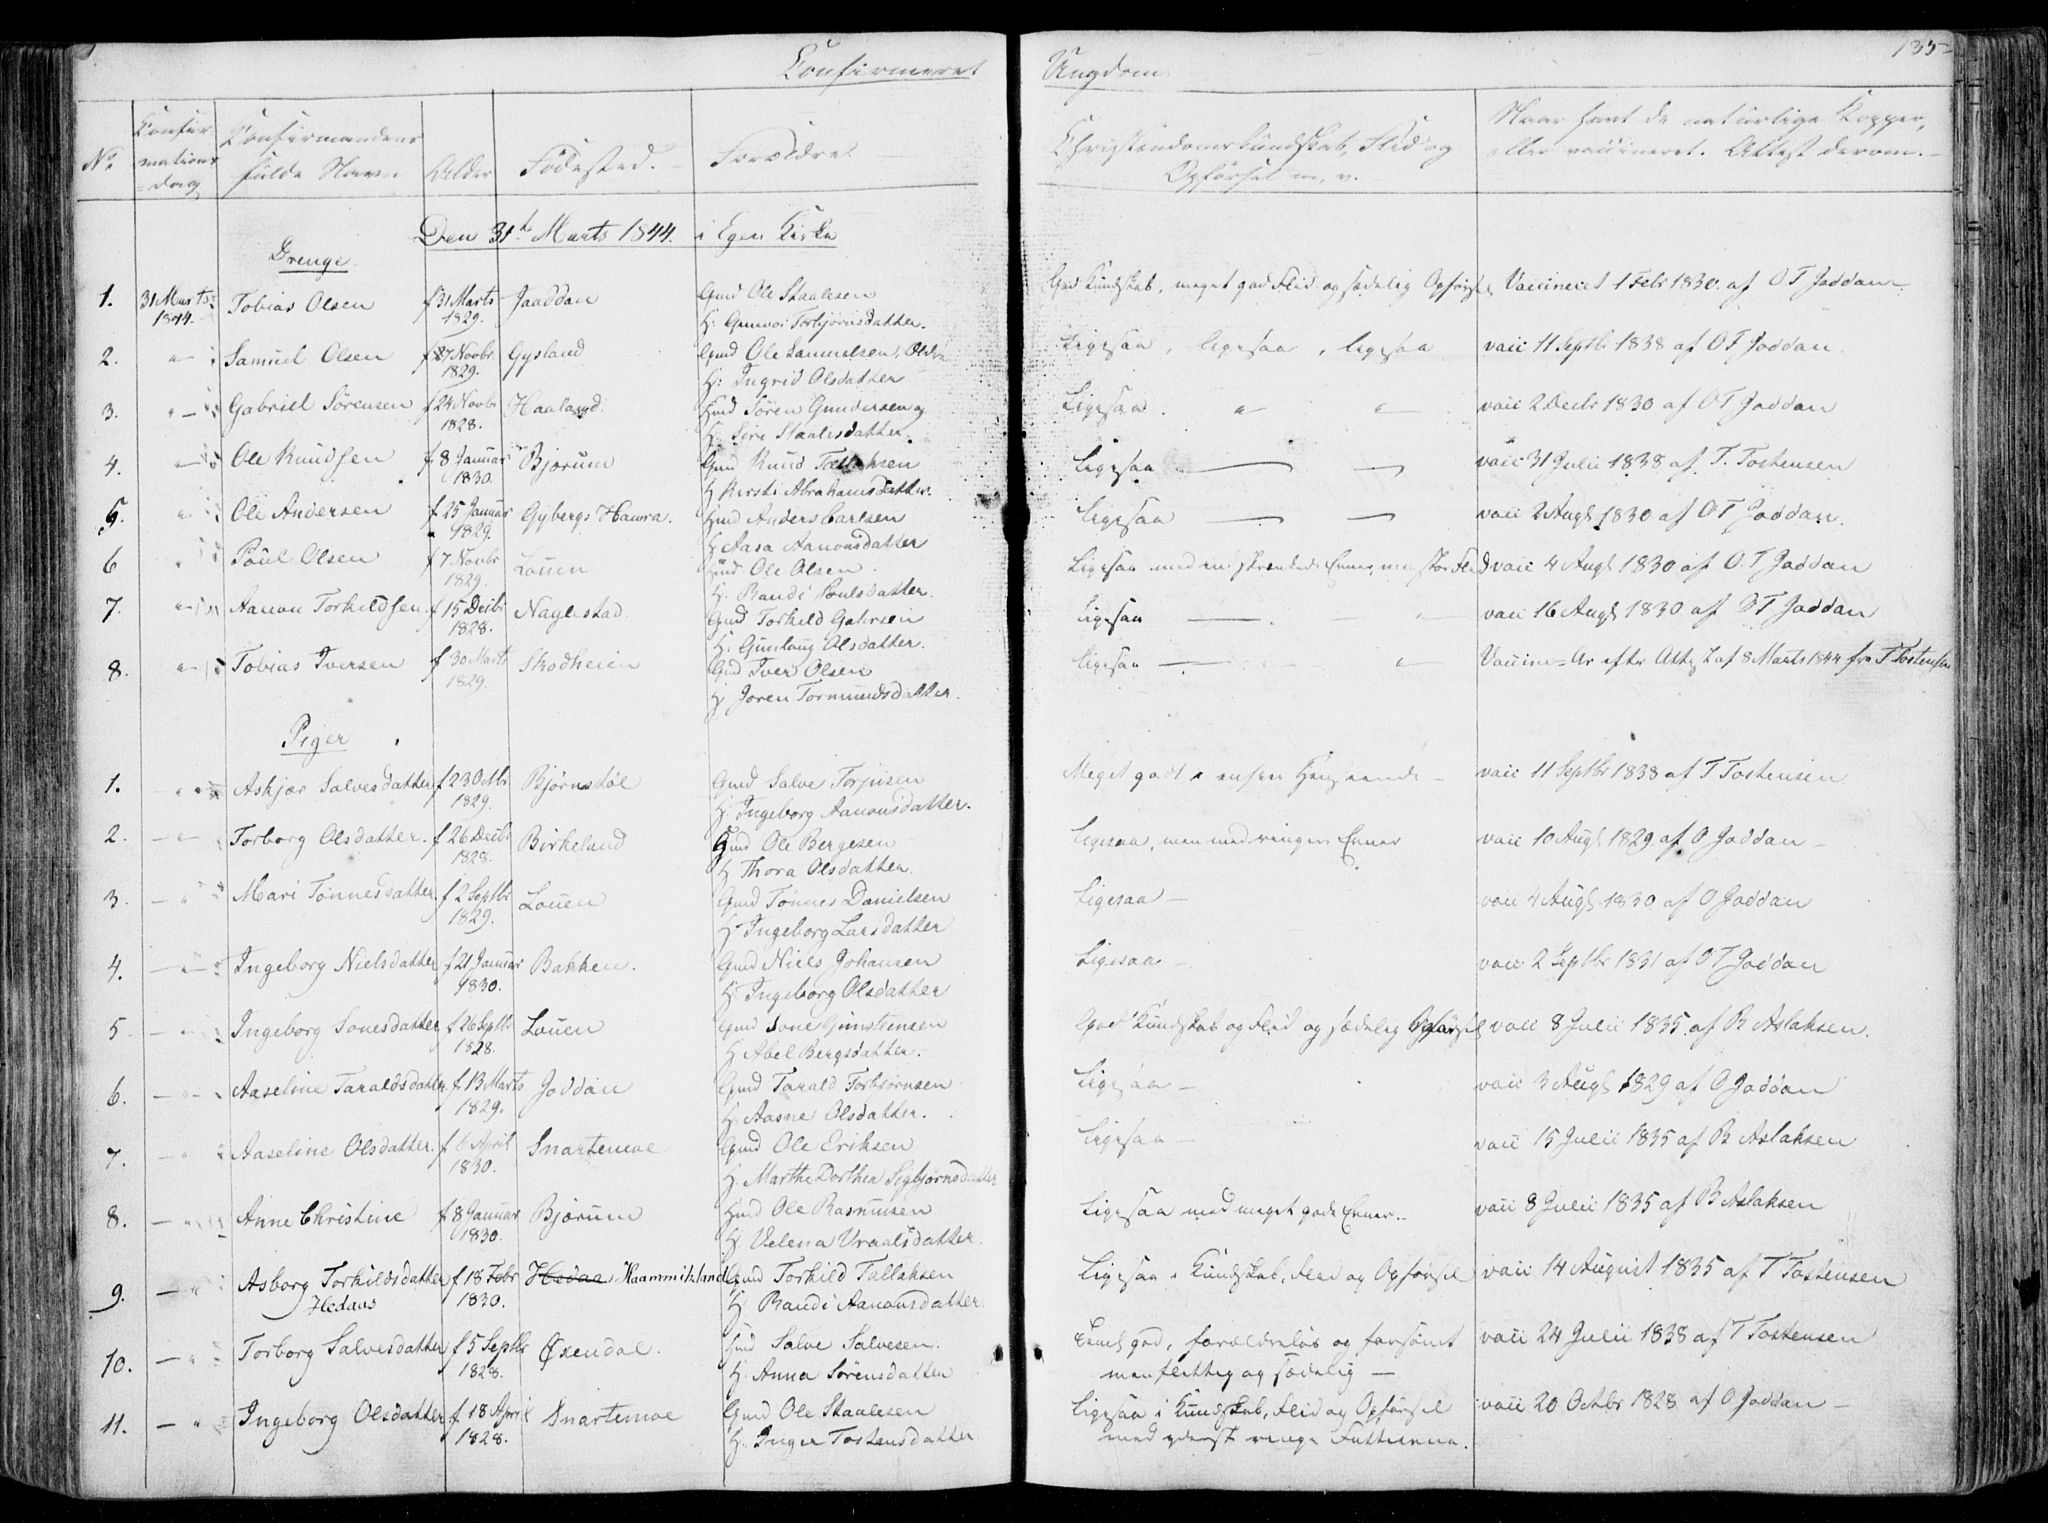 Confirmeret Ungdom
135
No
Confirmations dag
Confirmandens fulde Navn
Alder
Födested.
Forældre.
Christendomskundskab, Flid og Opförsel m. v.
Naar havt de naturlige Kopper, eller vaccineret. Attest derom.
Den 31te Marts 1844. i Egen Kirke
Drenge
1. 31 Marts 1844. Tobias Olsen f 31 Marts 1829. Jaaddan Gmd Ole Staalesen H: Gunvor Torbjörnsdatter. God Kundskab, meget god Flid og sædelig Opförsel Vaccineret 1 Febr 1830. af O T Joddan
2. " Samuel Olsen f 27 Novbr 1829. Gysland Gmd Ole Samuelsen H: Ingrid Olsdatter Ligesaa, ligesaa, ligesaa vacc 11 Septbr 1838 af O T Joddan
3. " Gabriel Sörensen f 24 Novbr 1828. Haaland. Hmd Sören Gundersen og H. Siri Staalesdatter. Ligesaa. " " vacc 2 Decbr 1830 af O T Joddan
4. Ole Knudsen f 8 Januar 1830. Bjorum Gmd Knud Tallaksen H Kirsti Abrahamsdatter. Ligesaa vacc 31 Julii 1838 af T. Tostensen
5. " Ole Andersen f 25 Januar 1829. Gybergs Hauvra. Hmd Anders Carlsen H Aasa Aanonsdatter Ligesaa vacc 2 Augt 1830 af O T Joddan.
6 " Poul Olsen f 7 Novbr 1829. Louen Hmd Ole Olsen. H. Randi Poulsdatter. Ligesaa med indskrænkede Evner, men stor Flid vacc 4 Augt 1830 af O. T Joddan
7. " Aanon Torkildsen f 15 Decbr 1828. Naglestad Gmd Torkild H. Gunlaug Olsdatter. Ligesaa vacc 16 Augt 1830 af O T Joddan
8. " Tobias Iversen f 30 Marts 1829. Skodheien Gmd Iver Olsen H Joren Tormundsdatter. Ligesaa " af 8 Marts 1844 fra T Tostensen
Piger
1. " Askjær Salvesdatter f 23 Octbr 1829. Bjørnstøl Gmd Salve Torjusen H: Ingeborg Aanonsdatter. Meget godt i enhver Henseende vacc 11 Septbr 1838 af T Tostensen
2. " Torborg Olsdatter. f 26 Decbr 1828. Birkeland Gmd Ole Bergesen H Thora Olsdatter. Ligesaa, men med ringere Evner vacc 10 Augt 1829 af O Joddan
3. " Mari Tönnesdatter. f 2 Septbr 1829. Louen Gmd Tönnes Danielsen H Ingeborg Larsdatter Ligesaa vacc 4 Augt 1830 af O Joddan
4. " Ingeborg Nielsdatter f 21 Januar 1830. Bakken. Gmd Niels Johansen H. Ingeborg Olsdatter Ligesaa vacc 2 Septbr 1831 af O T Joddan
5 " Ingeborg Sonesdatter f 26 Septbr 1828. Louen Gmd Sone Gunstensen H Abel Bergsdatter. God Kundskab og Flid og sædelig Opförsel vacc 8 Julii 1835. af B Aslaksen.
6. " Aaseline Taraldsdatter f 13 Marts 1829. Joddan Gmd Tarald Torbjörnsen H. Aasne Olsdatter. Ligesaa vacc 3 Augt 1829 af O Joddan
7. " Aaseline Olsdatter. f 6 April 1830. Snartemoe Gmd Ole Eriksen H. Marthe Dorthea Sigbjørnsdatter Ligesaa vacc 15 Julii 1835 af B Aslaksen
8. " Anne Christine f 8 Januar 1830. Bjorum Hmd Ole Rasmusen H. Velena Vraalsdatter. Ligesaa med meget gode Evner. vacc 8 Julii 1835 af B Aslaksen
9. " Asborg Torkildsdatter Hedaas f 18 Febr 1830. Hedaas Haammikland Gmd Torkild Tallaksen H Randi Aanonsdatter Ligesaa i Kundskab, Flid og Opförsel vacc 14 August 1835 af T Tostensen
10. " Torborg Salvesdatter f 5 Septbr 1828. Øxendal. Hmd Salve Salvesen. H. Anna Sörensdatter god, forældreløs og forsömt men flittig og sædelig vacc 24 Julii 1838 af T Tostensen
11. " Ingeborg Olsdatter f. 18 April 1828. Snartemoe Gmd Ole Staalesen H. Inger Tostensdatter Ligesaa i Kundskab, Flid og Opförsel med yderst ringe Fatteevne. vacc 20 Octbr 1828 af O Joddan